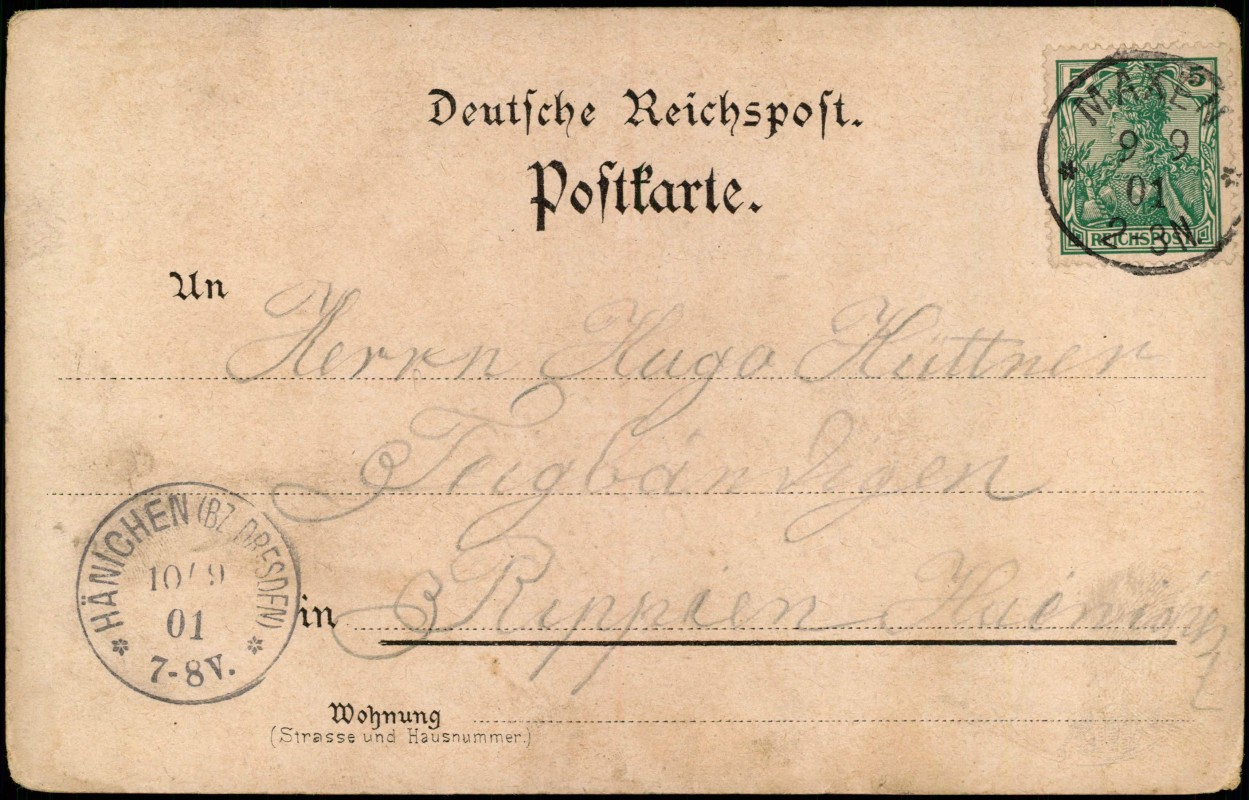 Deutsche Reichspost.
Postkarte.
5 5
REICHSPOST
MAXEN
9 9
01
2-3N
An Herrn Hugo Hüttner
in Rippien
HÄNICHEN (BZ. DRESDEN)
10/9
01
7-8V.
Wohnung
(Strasse und Hausnummer.)